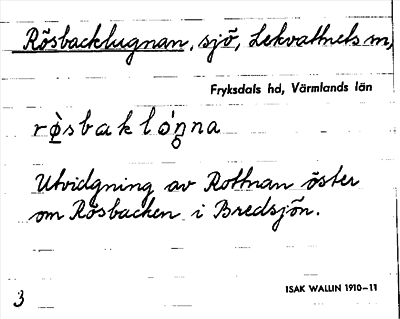 Rösbacklugnan, sjö, Lekvattnets sn,
Fryksdals hd, Värmlands län
rø̀sbaklóŋna
Utvidgning av Rottnan öster
om Rösbacken i Bredsjön.
ISAK WALLIN 1910–11
3